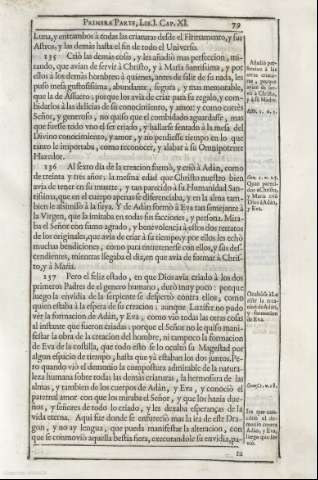 PRIMERA PARTE, LIB. I. CAP. XI. 79
Luna, y entrambos à todas las criaturas desde el Firmamento, y sus
Astros, y las demàs hasta el fin de todo el Universo.
135 Criò las demàs cosas, y les añadiò mas perfeccion, mi-
rando, que avian de servir à Christo, y à Maria Santissima, y por
ellos à los demàs hombres; à quienes, antes de salir de su nada, les
puso mesa gustosissima, abundante, segura, y mas memorable,
que la de Assuero; porque los avia de criar para su regalo, y com-
bidarlos à las delicias de su conocimiento, y amor: y como cortès
Señor, y generoso, no quiso que el combidado aguardasse, mas
que fuesse todo vno el ser criado, y hallarse sentado à la mesa del
Divino conocimiento, y amor, y no perdiesse tiempo en lo que
tanto le importaba, como reconocer, y alabar à su Omnipotente
Hazedor.
136 Al sexto dia de la creacion formò, y criò à Adàn, como
de treinta y tres años; la mesma edad que Christo nuestro bien
avia de tener en su muerte, y tan parecido à su Humanidad San-
tissima, que en el cuerpo apenas se diferenciaba, y en la alma tam-
bien le assimilò à la suya. Y de Adàn formò à Eva tan semejante à
la Virgen, que la imitaba en todas sus facciones, y persona. Mira-
ba el Señor con sumo agrado, y benevolencia à estos dos retratos
de los originales, que avia de criar à su tiempo, y por ellos les echò
muchas bendiciones, como para entretenerse con ellos, y sus des-
cendientes, mientras llegaba el dia, en que avia de formar à Chris-
to, y à Maria.
137 Pero el feliz estado, en que Dios avia criado à los dos
primeros Padres del genero humano, durò muy poco: porque
luego la envidia de la serpiente se despertò contra ellos, como
quien estaba à la espera de su creacion: aunque Luzifer no pudo
ver la formacion de Adàn, y Eva, como viò todas las otras cosas
al instante que fueron criadas: porque el Señor no le quiso mani-
festar la obra de la creacion del hombre, ni tampoco la formacion
de Eva de la costilla, que todo esto se lo ocultò su Magestad por
algun espacio de tiempo, hasta que yà estaban los dos juntos. Pe-
ro quando viò el demonio la compostura admirable de la natura-
leza humana sobre todas las demàs criaturas, la hermosura de las
almas, y tambien de los cuerpos de Adàn, y Eva, y conociò el
paternal amor con que los miraba el Señor, y que los hazia due-
ños, y señores de todo lo criado, y les dexaba esperanças de la
vida eterna. Aqui fue donde se enfureciò mas la ira de este Dra-
gon, y no ay lengua, que pueda manifestar la alteracion, con
que se commoviò aquella bestia fiera, executandole su envidia, pa-
ra